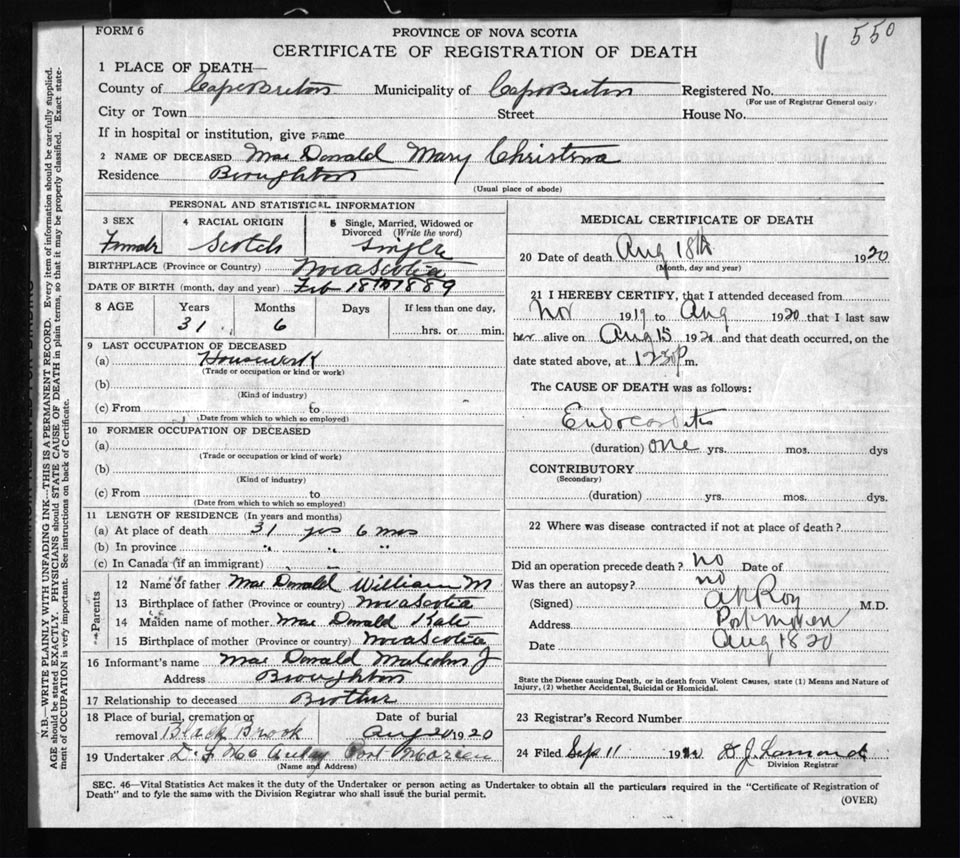 FORM 6
550
PROVINCE OF NOVA SCOTIA
CERTIFICATE OF REGISTRATION OF DEATH
1 PLACE OF DEATH—
County of Cape Breton Municipality of Cape Breton Registered No.
(For use of Registrar General only.)
City or Town Street House No.
If in hospital or institution, give name
2 NAME OF DECEASED Mac Donald Mary Christena
Residence Broughton
(Usual place of abode)
PERSONAL AND STATISTICAL INFORMATION
3 SEX 4 RACIAL ORIGIN 5 Single, Married, Widowed or Divorced (Write the word)
Female Scotch Single
BIRTHPLACE (Province or Country) Nova Scotia
DATE OF BIRTH (month, day and year) Feb 18th 1889
8 AGE Years Months Days If less than one day,
31 6 hrs. or min.
9 LAST OCCUPATION OF DECEASED
(a) Housework
(Trade or occupation or kind of work)
(b)
(Kind of industry)
(c) From to
(Date from which to which so employed)
10 FORMER OCCUPATION OF DECEASED
(a)
(Trade or occupation or kind of work)
(b)
(Kind of industry)
(c) From to
(Date from which to which so employed)
11 LENGTH OF RESIDENCE (In years and months)
(a) At place of death 31 yrs 6 mos
(b) In province " " "
(c) In Canada (if an immigrant)
Parents
12 Name of father Mac Donald William M
13 Birthplace of father (Province or country) Nova Scotia
14 Maiden name of mother Mac Donald Kate
15 Birthplace of mother (Province or country) Nova Scotia
16 Informant's name Mac Donald Malcolm J
Address Broughton
17 Relationship to deceased Brother
18 Place of burial, cremation or removal Black Brook Date of burial Aug 20 1920
19 Undertaker D. J. McAulay Port Morien
(Name and Address)
MEDICAL CERTIFICATE OF DEATH
20 Date of death Aug 18th 1920
(Month, day and year)
21 I HEREBY CERTIFY, that I attended deceased from
Nov 1919 to Aug 1920 that I last saw
her alive on Aug 15 1920 and that death occurred, on the
date stated above, at 1230 p m.
The CAUSE OF DEATH was as follows:
Endocarditis
(duration) one yrs. mos. dys
CONTRIBUTORY
(Secondary)
(duration) yrs. mos. dys.
22 Where was disease contracted if not at place of death?
Did an operation precede death? no Date of
Was there an autopsy? no
(Signed) Roy M.D.
Address Port Morien
Date Aug 18 20
State the Disease causing Death, or in death from Violent Causes, state (1) Means and Nature of
Injury, (2) whether Accidental, Suicidal or Homicidal.
23 Registrar's Record Number
24 Filed Sep 11 192 D J Lamond
Division Registrar
SEC. 46—Vital Statistics Act makes it the duty of the Undertaker or person acting as Undertaker to obtain all the particulars required in the "Certificate of Registration of
Death" and to fyle the same with the Division Registrar who shall issue the burial permit.
(OVER)
N.B.—WRITE PLAINLY WITH UNFADING INK—THIS IS A PERMANENT RECORD. Every item of information should be carefully supplied.
AGE should be stated EXACTLY. PHYSICIANS should STATE CAUSE OF DEATH in plain terms, so that it may be properly classified. Exact state-
ment of OCCUPATION is very important. See instructions on back of Certificate.